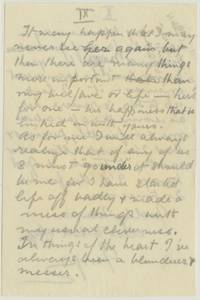 IX
It may happen that I may
never see her again, but
then there are many things
more important than
my welfare or life — hers
for one — his happiness that is
linked in with yours.
As for me I will always
realize that of any of us
3 must go under it should
be me for I have started
life off badly & made a
mess of things with
my usual cleverness.
In things of the heart I've
always been a blunderer &
messer.